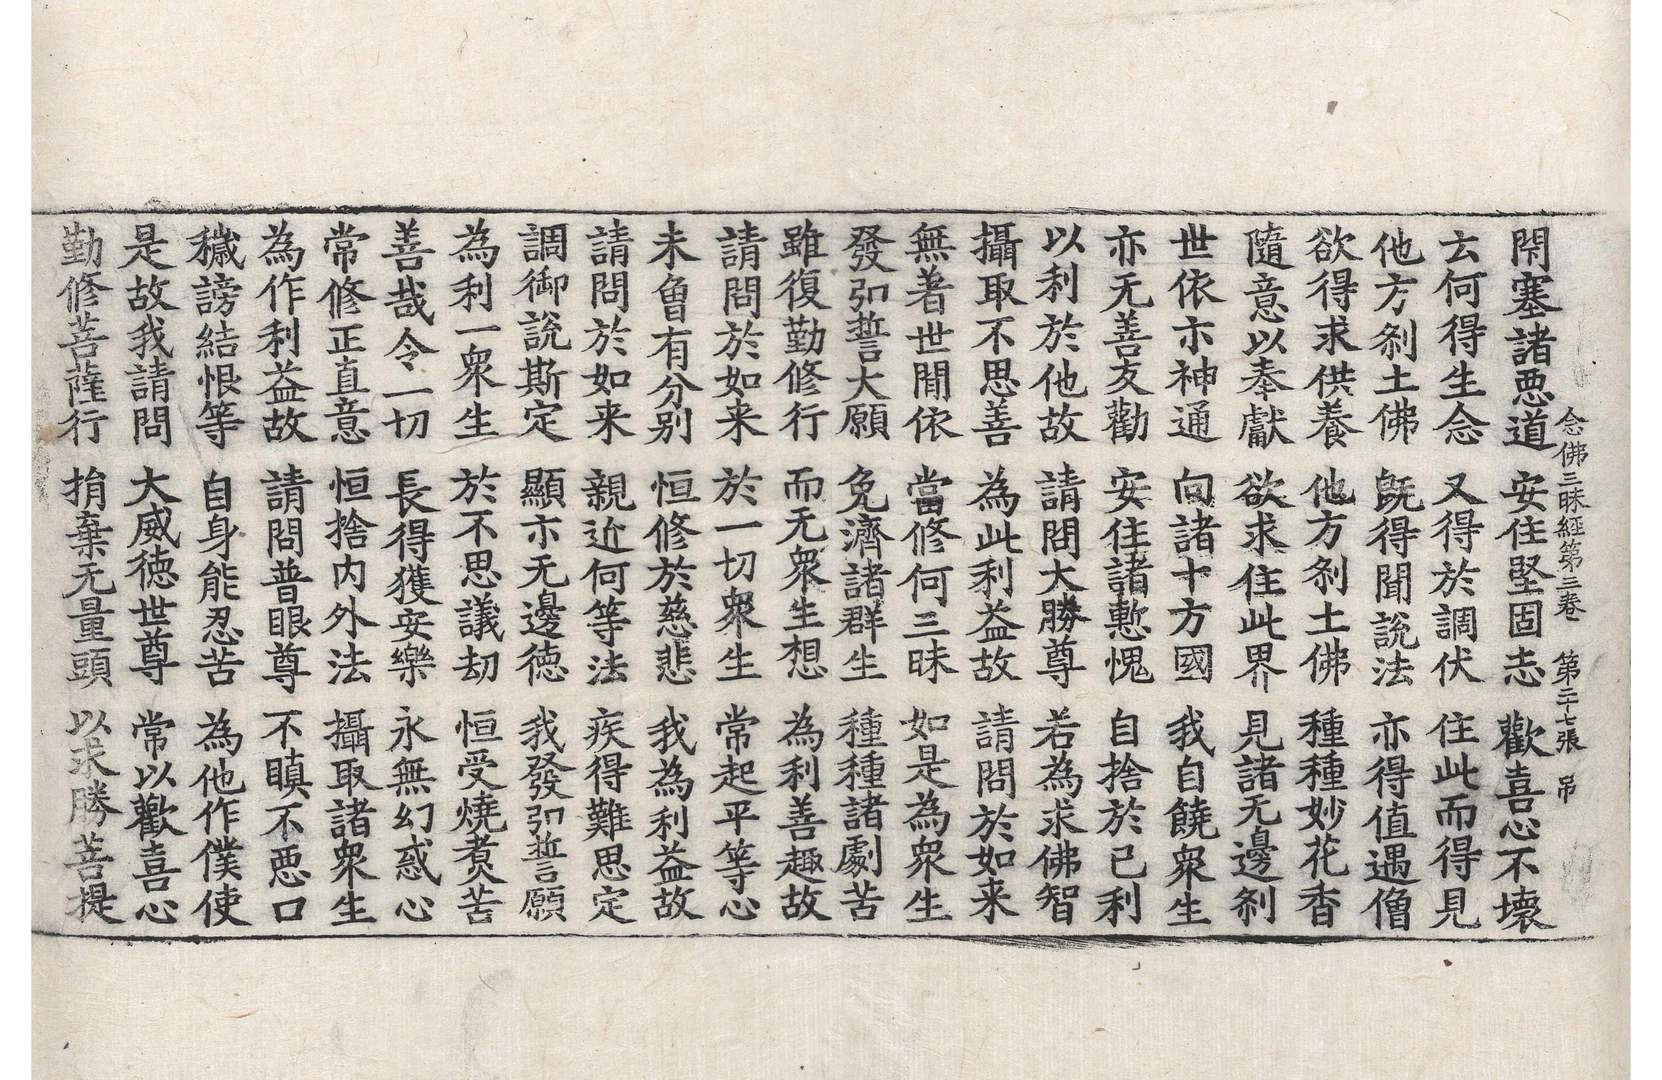 念佛三昧經第三卷 第二十七張 吊
閇塞諸惡道 安住堅固志 歡喜心不壞
云何得生念 又得於調伏 住此而得見
他方刹土佛 旣得聞說法 亦得值遇僧
欲得求供養 他方刹土佛 種種妙花香
隨意以奉獻 欲求住此界 見諸无邊刹
世依示神通 向諸十方國 我自饒衆生
亦无善友勸 安住諸慙愧 自捨於己利
以利於他故 請問大勝尊 若為求佛智
攝取不思善 為此利益故 請問於如来
無著世間依 當修何三昧 如是為衆生
發弘誓大願 免濟諸群生 種種諸劇苦
雖復勤修行 而无衆生想 為利善趣故
請問於如来 於一切衆生 常起平等心
未曾有分别 恒修於慈悲 我為利益故
請問於如来 親近何等法 疾得難思定
調御說斯定 顯示无邊德 我發弘誓願
為利一衆生 於不思議劫 恒受燒煑苦
善哉令一切 長得獲安樂 永無幻惑心
常修正直意 恒捨内外法 攝取諸衆生
為作利益故 請問普眼尊 不瞋不惡口
穢謗結恨等 自身能忍苦 為他作僕使
是故我請問 大威德世尊 常以歡喜心
勤修菩薩行 捐棄无量頭 以求勝菩提